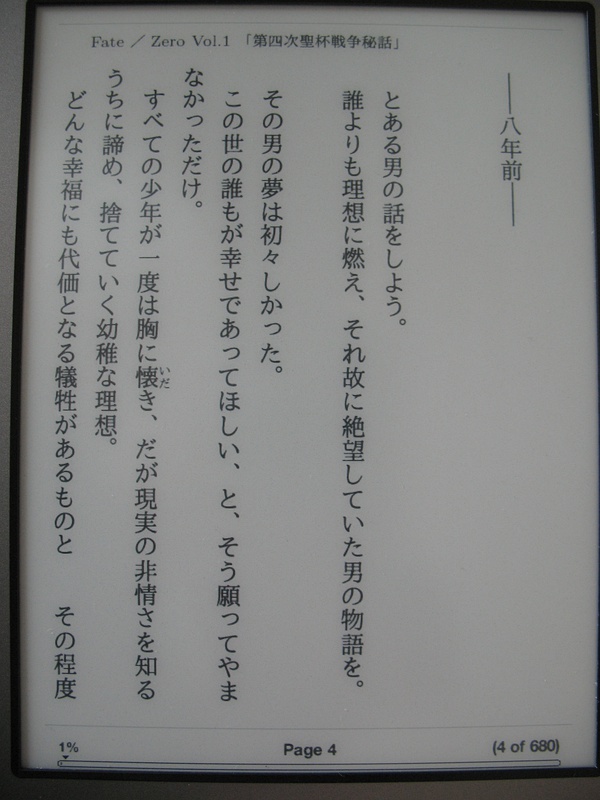 Fate ／ Zero Vol.1 「第四次聖杯戦争秘話」
――八年前――
とある男の話をしよう。
誰よりも理想に燃え、それ故に絶望していた男の物語を。
その男の夢は初々しかった。
この世の誰もが幸せであってほしい、と、そう願ってやま
なかっただけ。
すべての少年が一度は胸に懐き、だが現実の非情さを知る
いだ
うちに諦め、捨てていく幼稚な理想。
どんな幸福にも代価となる犠牲があるものと　その程度
1%
Page 4
(4 of 680)